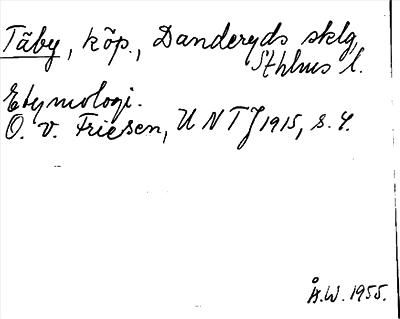 Täby, köp., Danderyds sklg,
Sthlms l.
Etymologi.
O. v. Friesen, UNTJ 1915, s. 4.
Å.W. 1955.